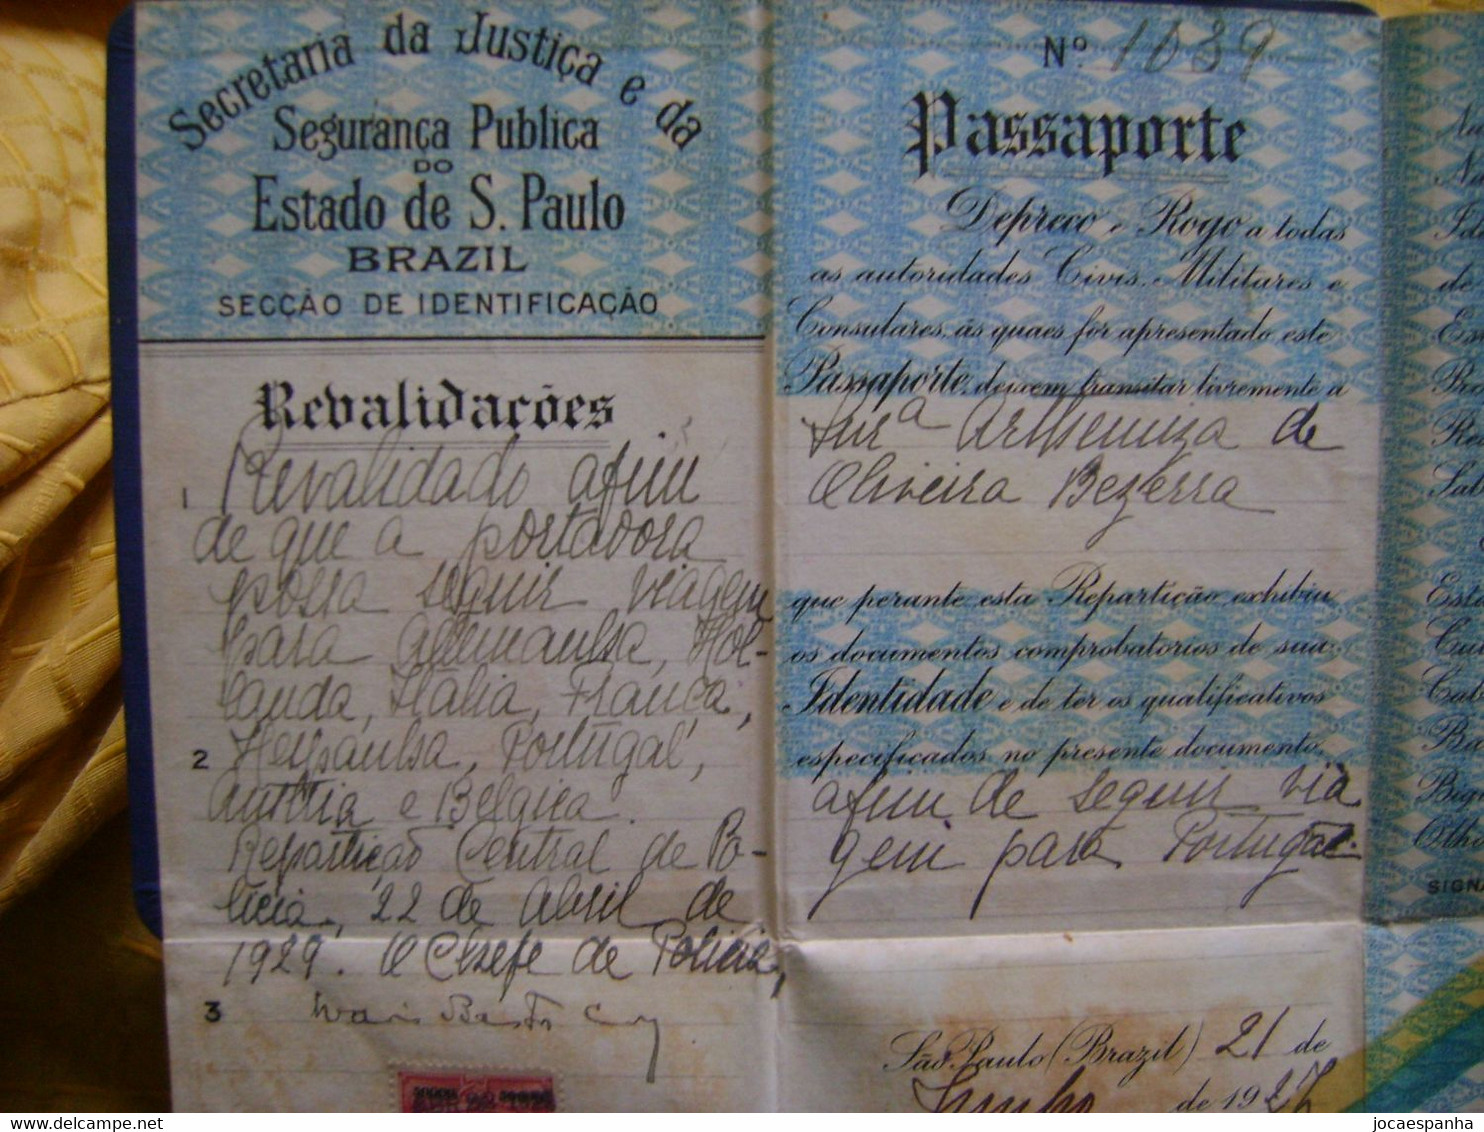 Secretaria da Justiça e da
Segurança Publica
DO
Estado de S. Paulo
BRAZIL
SECÇÃO DE IDENTIFICAÇÃO
Revalidações
1 Revalidado afim
de que a portadora
possa seguir viagem
para Allemanha, Hol-
landa, Italia, França,
2 Hespanha, Portugal,
Austria e Belgica.
Repartição Central de Po-
licia, 22 de Abril de
1929. O Chefe de Policia,
3
Nº 1039
Passaporte
Depreco e Rogo a todas
as autoridades Civis, Militares e
Consulares, ás quaes fôr apresentado este
Passaporte, deixem transitar livremente a
Snrª Arthemiza de
Oliveira Bezerra
que perante esta Repartição exhibiu
os documentos comprobatorios de sua
Identidade e de ter os qualificativos
especificados no presente documento,
afim de seguir via
gem para Portugal.
São Paulo (Brazil) 21 de
Junho de 1927
SIGNA
delcampe.net
jocaespanha